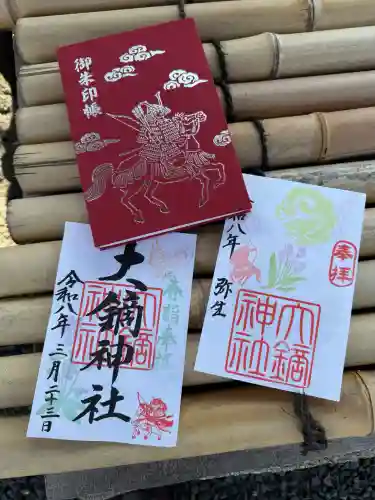 御朱印帳
奉拝
大鏑神社
令和八年
弥生
大鏑神社
大鏑神社
令和八年 三月二十三日